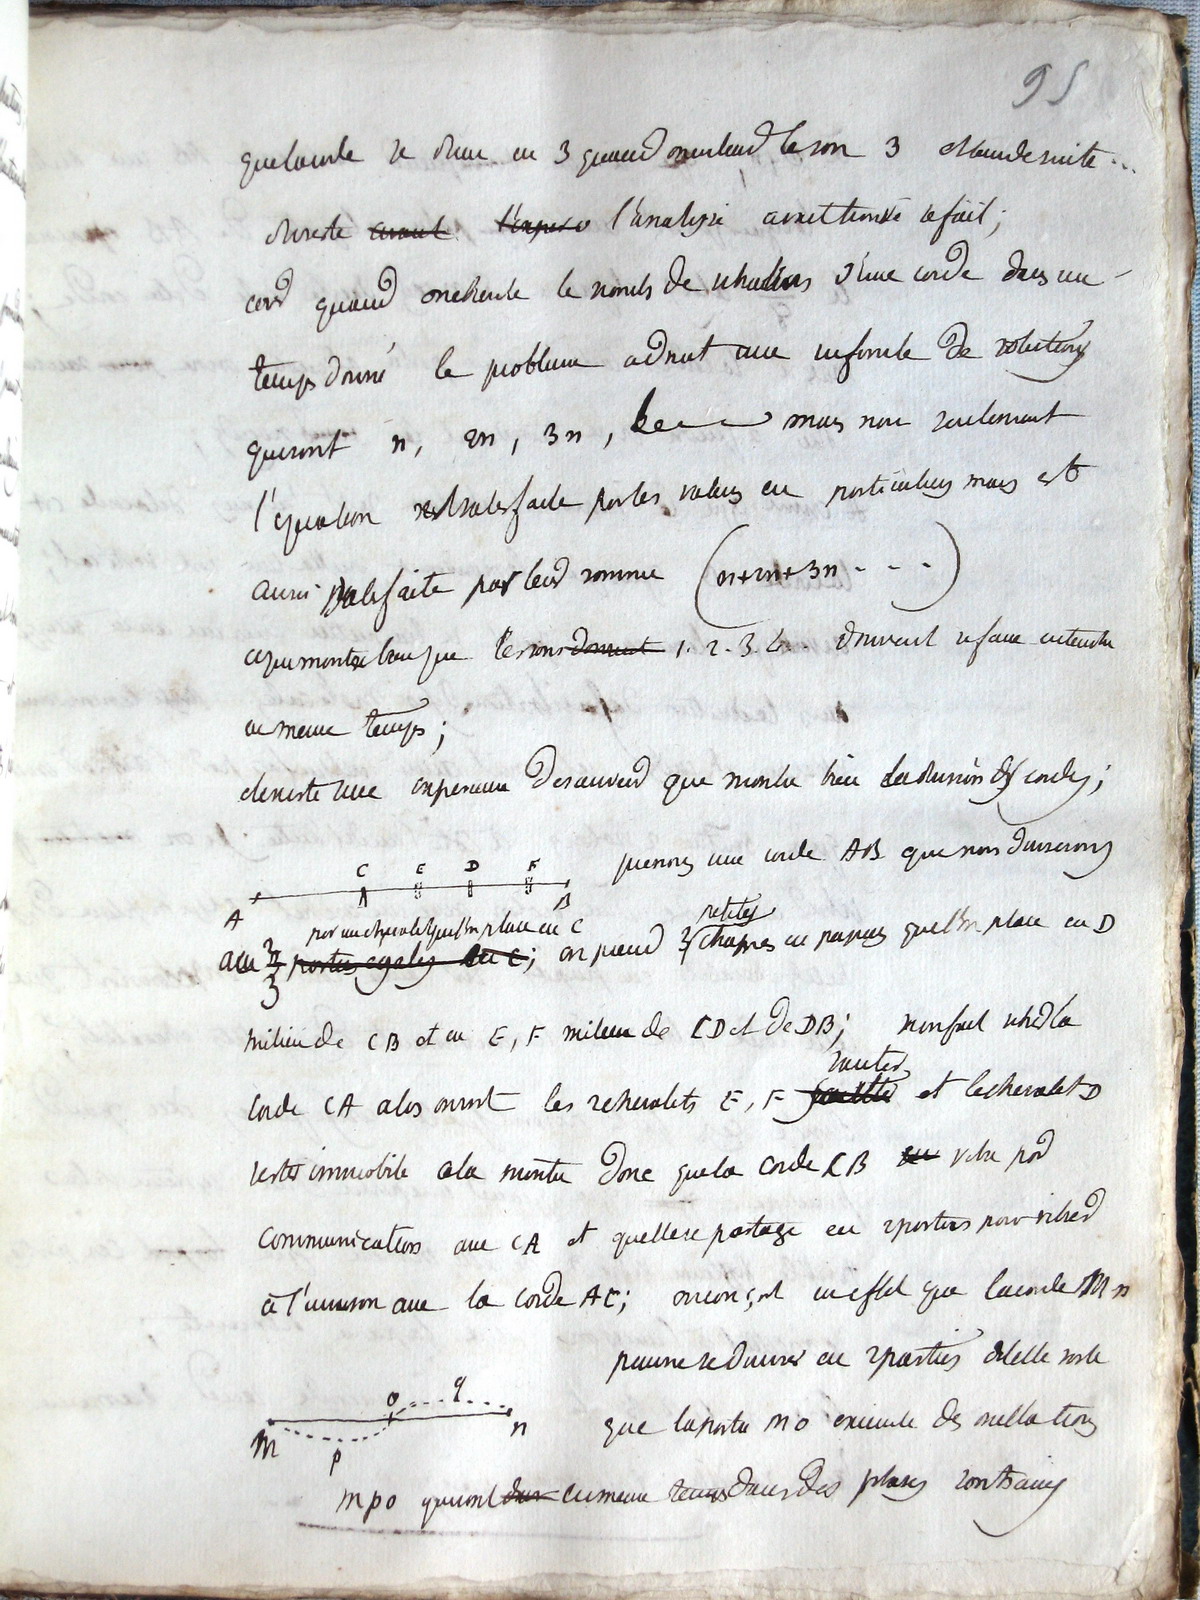 95
que la corde se divise en 3 quand on entend le son 3 et ainsi de suite...
du reste avait l'expere l'analyse avait trouvé ce fait;
card quand on cherche le nombs de vibrations d'une corde dans un
temps donné le probleme admet une infinité de solutions
qui sont n, 2n, 3n, &c mais non seulement
l'equation est satisfaite par les values en particulieres mais est
aussi satisfaite par leur somme (n+2n+3n - - - )
ce qui montre bien que les sons doivent 1. 2. 3. 4.. doivent se faire entendre
en meme temps;
il existe une experience de sauveur que montre bien la division des cordes;
C E D F
A B
prenons une corde AB que nous diviserons
par un chevalet que l'on place en C
petits
au 2/3 parties egales en C; on prend 3 chapes en papier que l'on place en D
milieu de CB et en E, F milieu de CD et de DB; on fait vibrer la
sauter
corde CA alors on voit les 2 chevalets E, F sauter et le chevalet D
rester immobile cela montre donc que la corde CB vibre par
communication avec CA et qu'elle se partage en 2 parties pour vibrer
à l'unisson avec la corde AC; on conçoit en effet que la corde M n
puisse se diviser en 2 parties de telle sorte
o q
M p n
que la partie m o execute des oscillations
m p o qui sont dans en meme temps dans des phases contraires